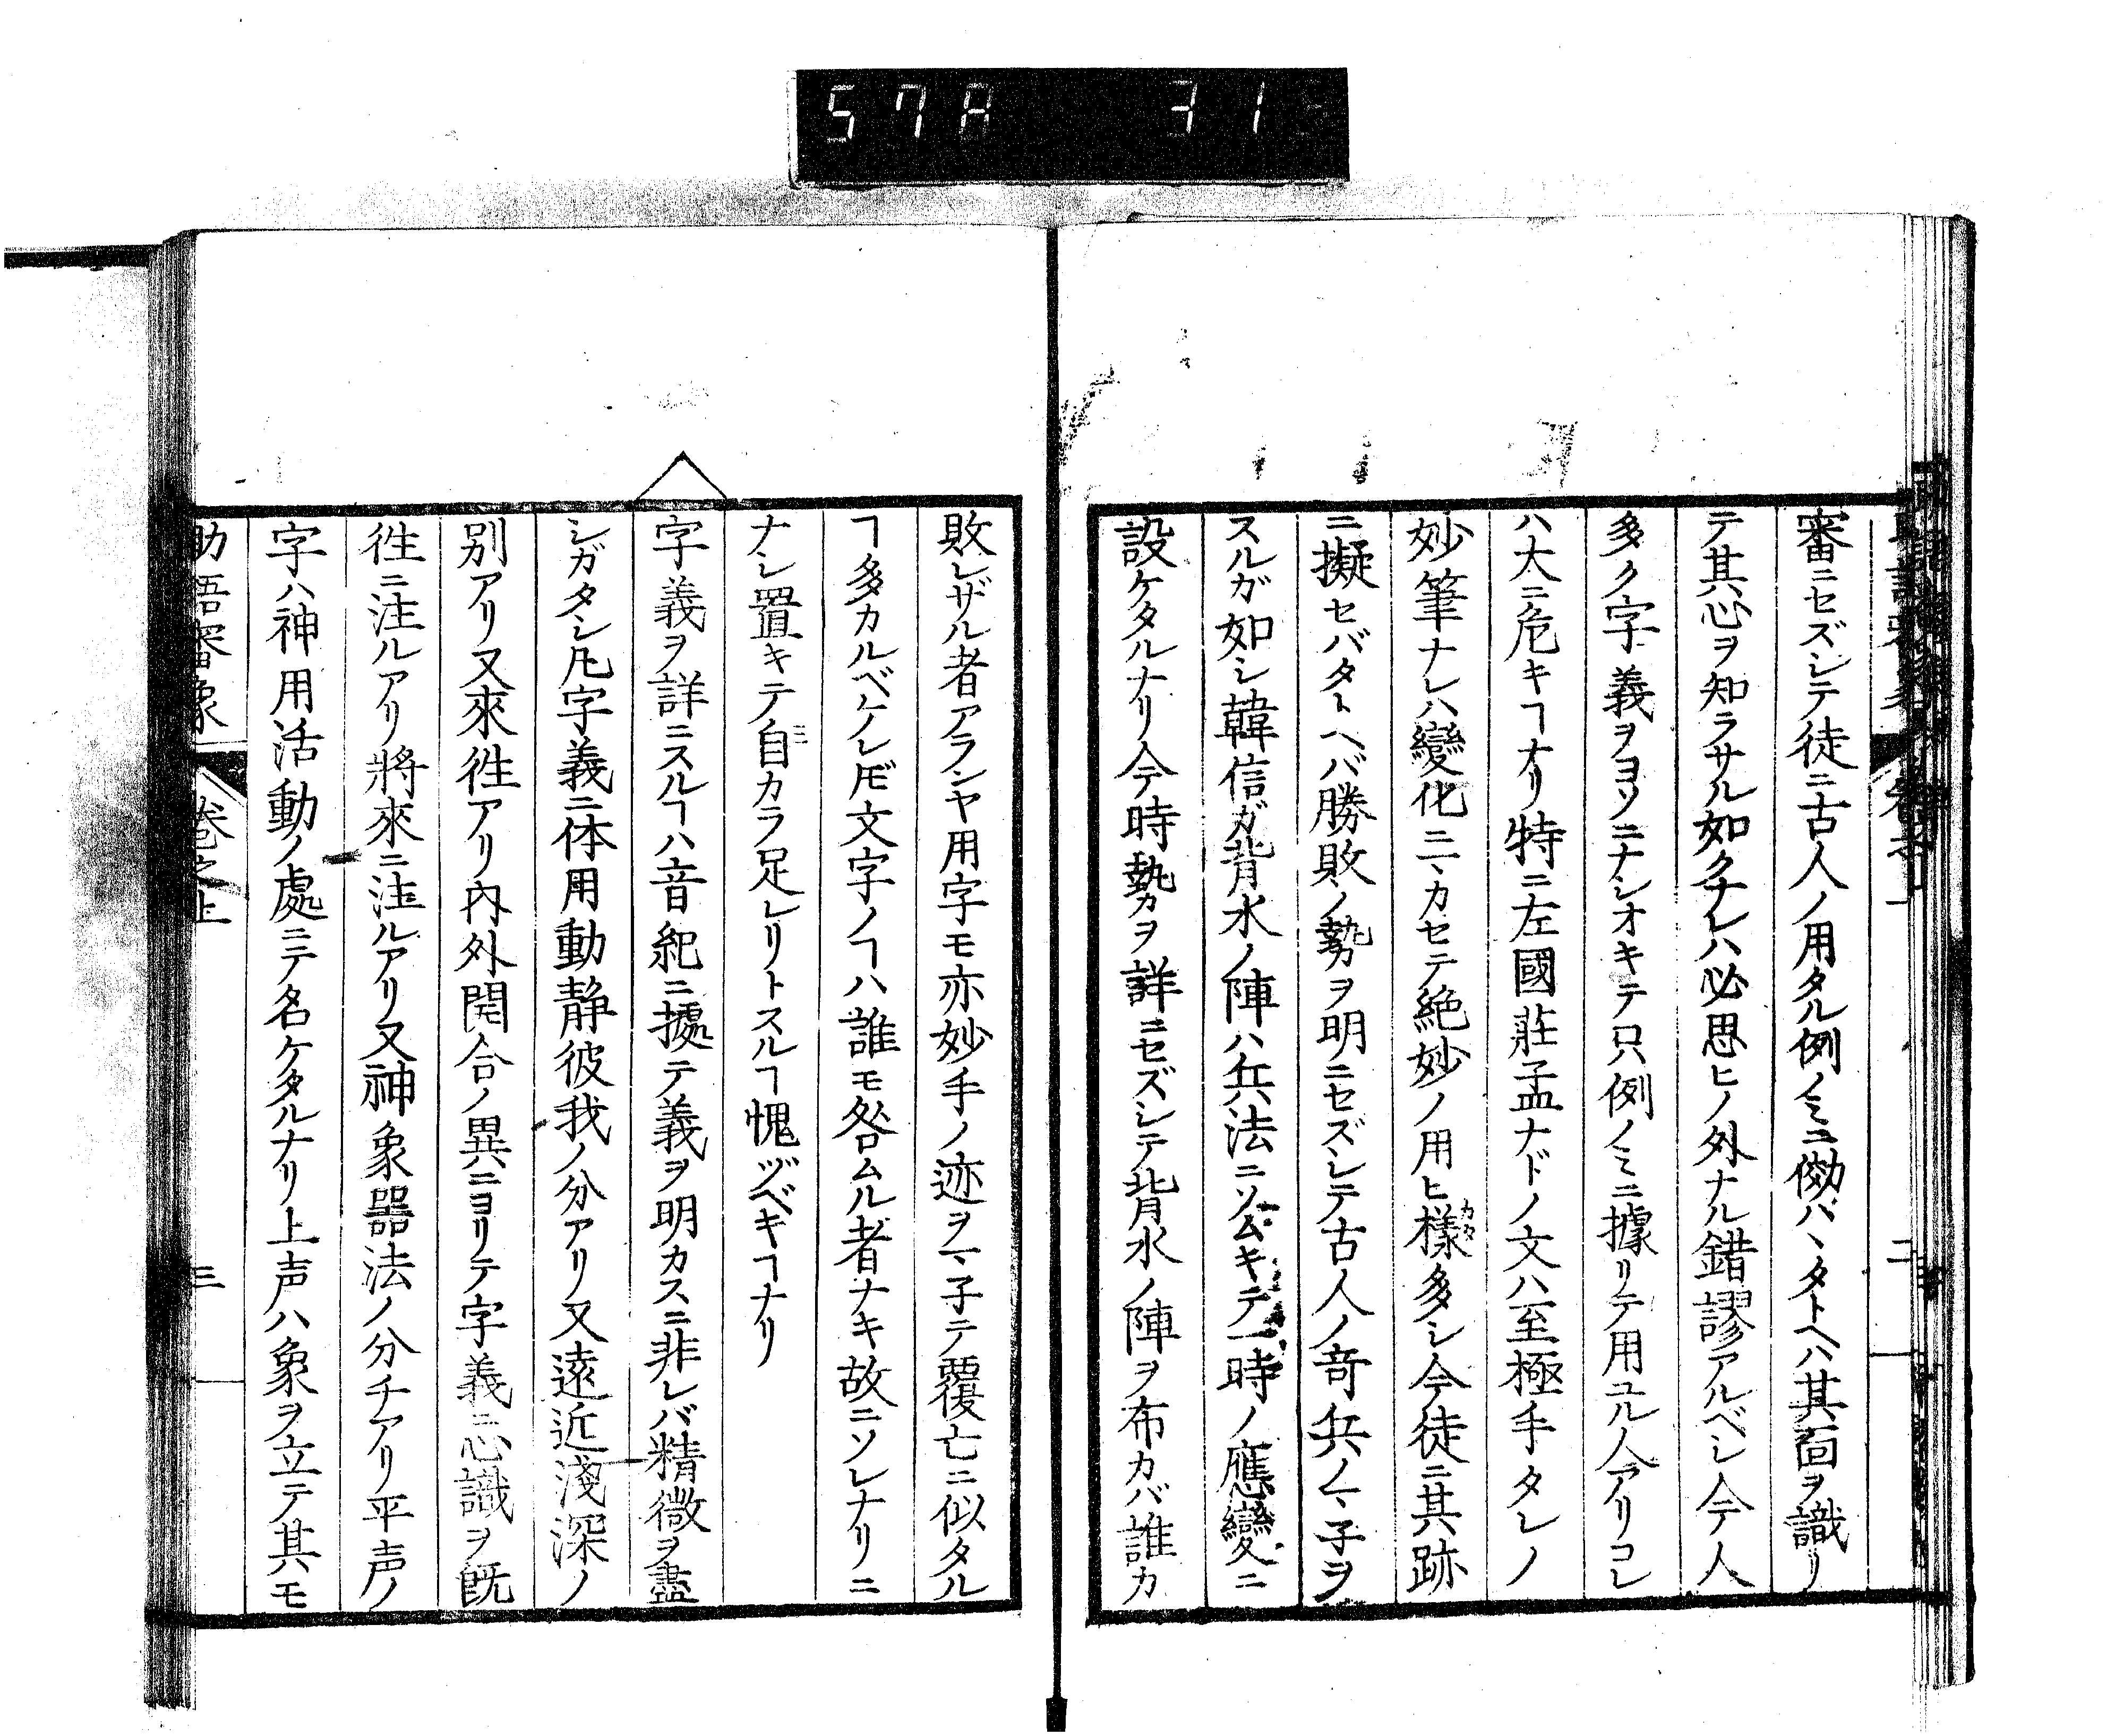 57A 31
審ニセズシテ徒ニ古人ノ用タル例ノミニ傚ハヽタトヘハ其面ヲ識リ
テ其心ヲ知ラサル如クナレハ必思ヒノ外ナル錯謬アルベシ今人
多ク字義ヲヨソニナシオキテ只例ノミニ據リテ用ユル人アリコレ
ハ大ニ危キヿナリ特ニ左國莊孟ナドノ文ハ至極手タレノ
妙筆ナレハ變化ニヽカセテ絶妙ノ用ヒ様多シ今徒ニ其跡
ニ擬セバタトヘバ勝敗ノ勢ヲ明ニセズシテ古人ノ奇兵ノヽ子ヲ
スルガ如シ韓信ガ背水ノ陣ハ兵法ニソムキテ一時ノ應變ニ
設ケタルナリ今時勢ヲ詳ニセズシテ背水ノ陣ヲ布カバ誰カ
敗レザル者アランヤ用字モ亦妙手ノ迹ヲヽ子テ覆亡ニ似タル
ヿ多カルベケレ𪜈文字ノヿハ誰モ咎ムル者ナキ故ニソレナリニ
ナシ置キテ自カラ足レリトスルヿ愧ヅベキヿナリ
字義ヲ詳ニスルヿハ音紀ニ據テ義ヲ明カスニ非レバ精微ヲ盡
シガタシ凡字義ニ体用動静彼我ノ分アリ又遠近淺深ノ
別アリ又來徃アリ內外開合ノ異ニヨリテ字義ニ心識ヲ既
徃ニ注ルアリ將來ニ注ルアリ又神象器法ノ分チアリ平声ノ
字ハ神用活動ノ處ニテ名ケタルナリ上声ハ象ヲ立テ其モ
助語審象 卷之上 三